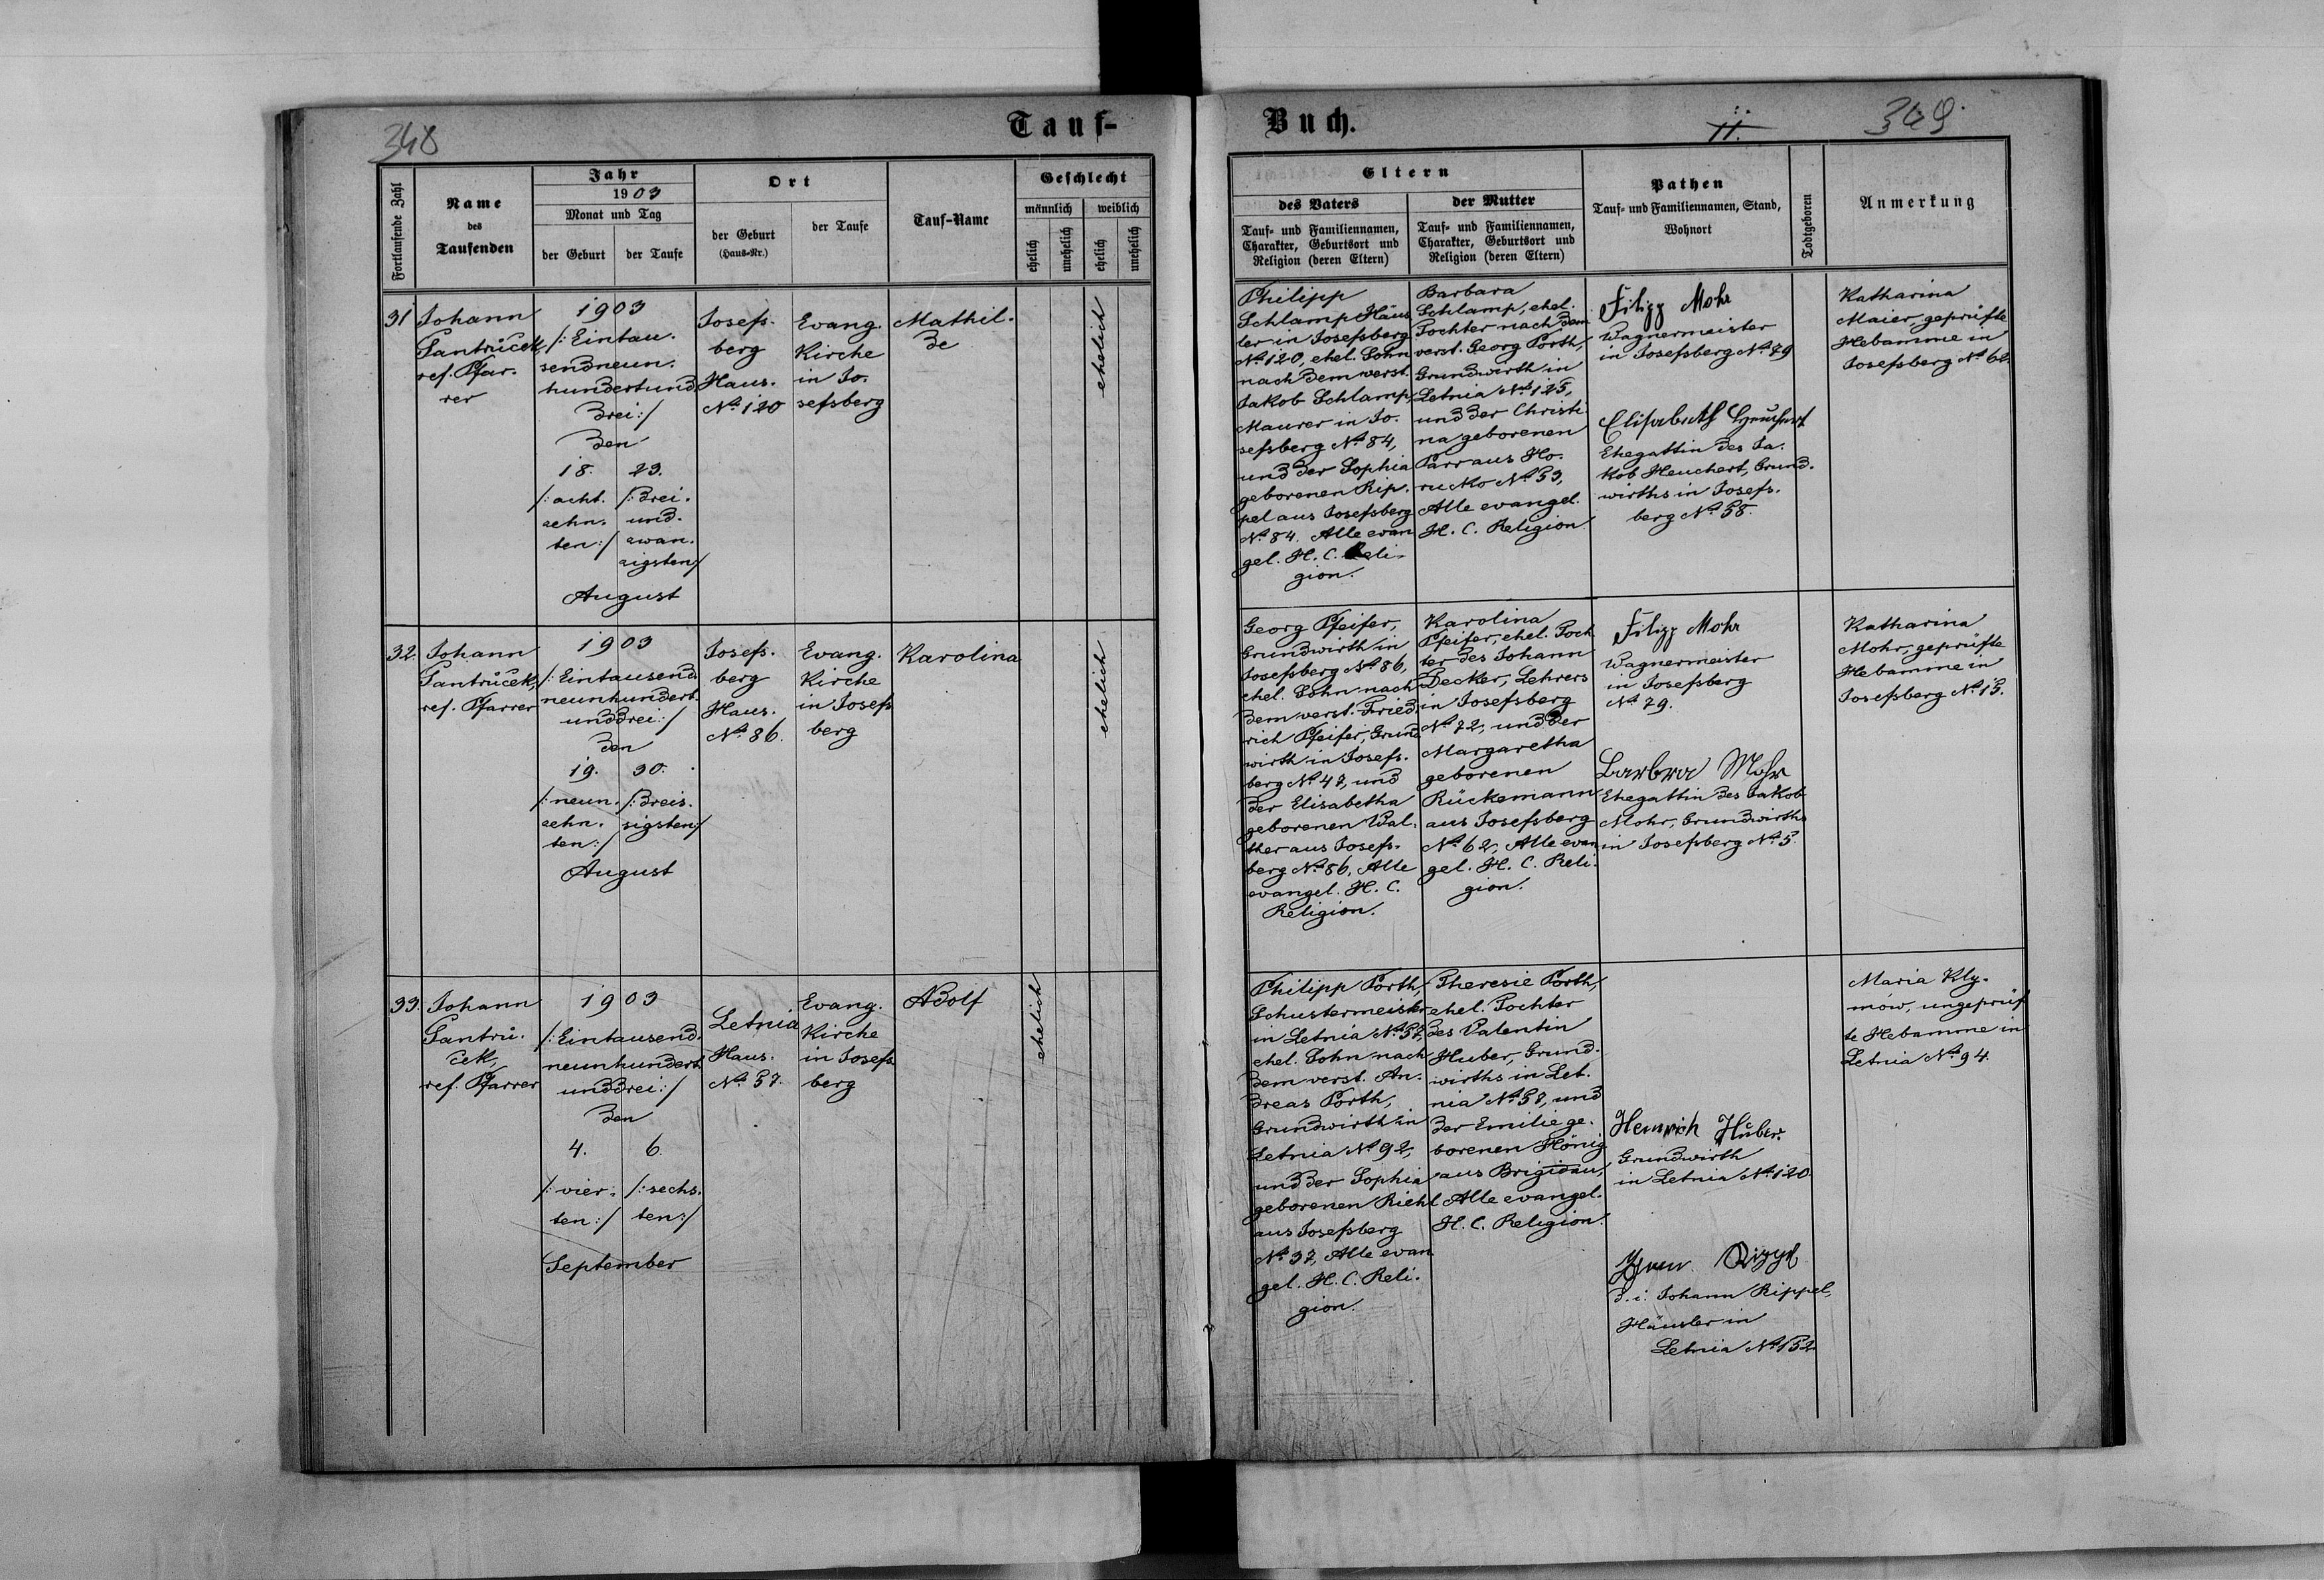 348
Tauf-
Fortlaufende Zahl
Name
des
Taufenden
Jahr
1903
Monat und Tag
der Geburt
der Taufe
Ort
der Geburt
(Haus-Nr.)
der Taufe
Tauf-Name
Geschlecht
männlich
weiblich
ehelich
unehelich
ehelich
unehelich
31
Johann
Jantrůček,
ref. Pfar-
rer
1903
/: Eintau-
sendneun-
hundertund
drei :/
den
18.
/: acht-
zehn-
ten :/
23.
/: Drei-
und-
zwan-
zigsten/
August
Josefs-
berg
Haus-
No 120
Evang.
Kirche
in Jo-
sefsberg
Mathil-
de
ehelich
32.
Johann
Jantrůček,
ref. Pfarrer
1903
/: Eintausend
neunhundert
unddrei :/
den
19.
/: neun-
zehn-
ten :/
30.
/: Dreis-
sigsten :/
August
Josefs-
berg
Haus-
No 86.
Evang.
Kirche
in Josefs
berg
Karolina
ehelich
33.
Johann
Jantrů-
ček,
ref. Pfarrer
1903
/: Eintausend
neunhundert
unddrei :/
den
4.
/: vier-
ten :/
6.
/: sechs-
ten :/
September
Letnia
Haus-
No 57.
Evang.
Kirche
in Josefs
berg
Adolf
ehelich
Buch.
II.
349
Eltern
des Vaters
Tauf- und Familiennamen,
Charakter, Geburtsort und
Religion (deren Eltern)
der Mutter
Tauf- und Familiennamen,
Charakter, Geburtsort und
Religion (deren Eltern)
Pathen
Tauf- und Familiennamen, Stand,
Wohnort
Todtgeboren
Anmerkung
Philipp
Schlamp Häus
ler in Josefsberg
No 120, ehel. Sohn
nach dem verst.
Jakob Schlamp,
Maurer in Jo-
sefsberg No 84,
und der Sophia
geborenen Rip-
pel aus Josefsberg
No 84. Alle evan
gel. H. C. Reli-
gion.
Barbara
Schlamp, ehel.
Tochter nach dem
verst. Georg Porth,
Grundwirth in
Letnia No 125,
und der Christi-
na geborenen
Parr aus Ho-
rucko No 53,
Alle evangel.
H. C. Religion.
Filipp Mohr
Wagnermeister
in Josefsberg No 79
Elisabeth Heuchert
Ehegattin des Ja-
kob Heuchert, Grund-
wirths in Josefs-
berg No 58.
Katharina
Maier, geprüfte
Hebamme in
Josefsberg No 62.
Georg Pfeifer,
Grundwirth in
Josefsberg No 86,
ehel. Sohn nach
dem verst. Fried-
rich Pfeifer, Grund
wirth in Josefs-
berg No 47, und
der Elisabetha
geborenen Wal-
ther aus Josefs-
berg No 86, Alle
evangel. H. C.
Religion.
Karolina
Pfeifer, ehel. Toch
ter des Johann
Decker, Lehrers
in Josefsberg
No 72, und der
Margaretha
geborenen
Rückemann
aus Josefsberg
No 62, Alle evan
gel. H. C. Reli-
gion.
Filipp Mohr
Wagnermeister
in Josefsberg
No 79.
Barbra Mohr
Ehegattin des Jakob
Mohr, Grundwirths
in Josefsberg No 5.
Katharina
Mohr, geprüfte
Hebamme in
Josefsberg No 15.
Philipp Porth
Schustermeister
in Letnia No 57,
ehel. Sohn nach
dem verst. An-
dreas Porth,
Grundwirth in
Letnia No 92,
und der Sophia
geborenen Riehl
aus Josefsberg
No 37, Alle evan
gel. H. C. Reli-
gion.
Theresie Porth
ehel. Tochter
des Valentin
Huber, Grund-
wirths in Let-
nia No 58, und
der Emilie ge-
borenen Hönig
aus Brigidau,
Alle evangel.
H. C. Religion.
Heinrich Huber
Grundwirth
in Letnia No 120
d. i. Johann Rippel,
Häusler in
Letnia No 152.
Maria Kly-
mów, ungeprüf
te Hebamme in
Letnia No 94.